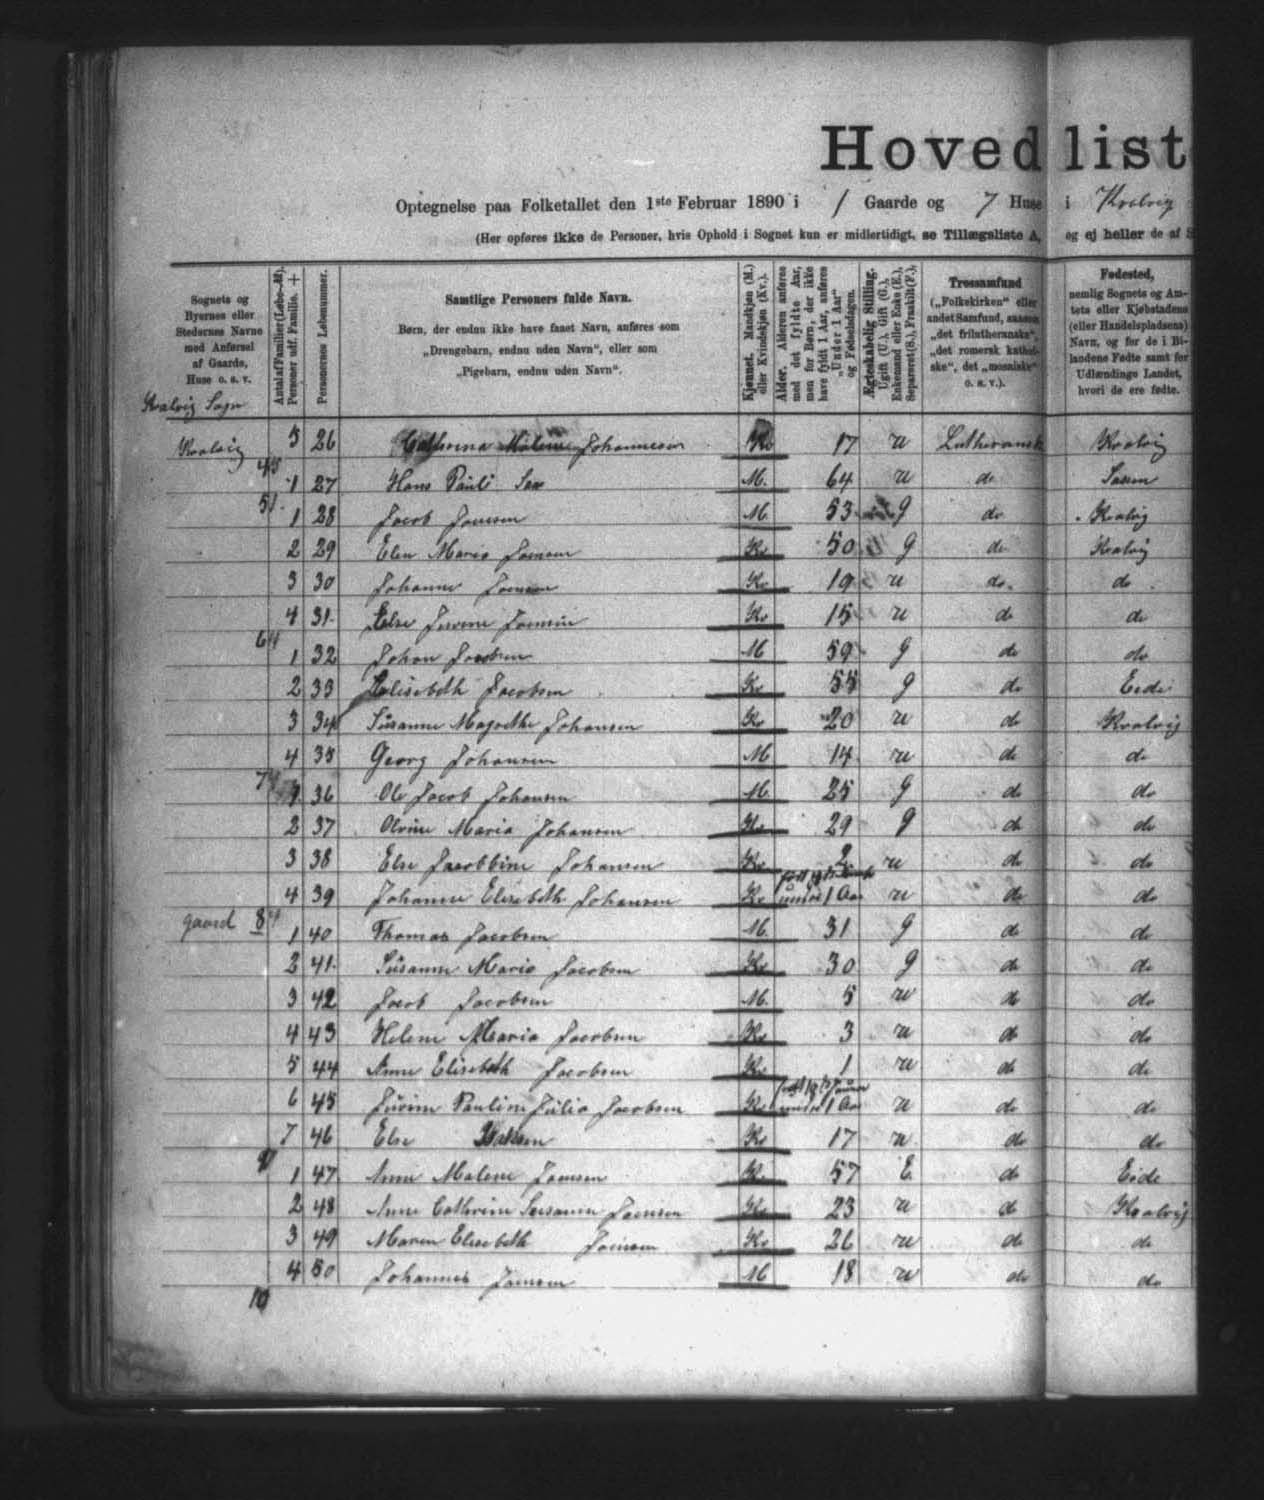 Hovedlist
Optegnelse paa Folketallet den 1ste Februar 1890 i 1 Gaarde og 7 Huse i Kvalvig
(Her opføres ikke de Personer, hvis Ophold i Sognet kun er midlertidigt, se Tillægsliste A, og ej heller de af S
Sognets og Byernes eller Stedernes Navne med Anførsel af Gaarde, Huse o. s. v.
Antal af Familier (Løbe-№). Personer udf. Familie. +
Personernes Løbenummer.
Samtlige Personers fulde Navn.
Børn, der endnu ikke have faaet Navn, anføres som
„Drengebarn, endnu uden Navn“, eller som
„Pigebarn, endnu uden Navn“.
Kjønnet. Mandkjøn (M.) eller Kvindekjøn (Kv.).
Alder. Alderen anføres med det fyldte Aar, men for Børn, der ikke have fyldt 1 Aar, anføres „Under 1 Aar“ og Fødselsdagen.
Ægteskabelig Stilling. Ugift (U.), Gift (G.), Enkemand eller Enke (E.), Separeret (S.), Fraskilt (F.).
Trossamfund („Folkekirken“ eller andet Samfund, saasom „det frilutheranske“, „det romersk katholske“, det „mosaiske“ o. s. v.).
Fødested, nemlig Sognets og Amtets eller Kjøbstadens (eller Handelspladsens) Navn, og for de i Bilandene Fødte samt for Udlændinge Landet, hvori de ere fødte.
Kvalvig Sogn
Kvalvig 5 26 Cathrina Malene Johannesen Kv 17 u Lutheransk Kvalvig
1 27 Hans Pauli M. 64 u do
5 1 28 Jacob Joensen M. 53 g do Kvalvig
2 29 Elen Maria Joensen Kv 50 g do Kvalvig
3 30 Johanne Joensen Kv 19 u do do
4 31 Else Joensen Kv 15 u do do
6 4 1 32 Johan Jacobsen M 59 g do do
2 33 Elisebeth Jacobsen Kv 55 g do Eide
3 34 Susanne Magrethe Johansen Kv 20 u do Kvalvig
4 35 Georg Johansen M 14 u do do
7 4 1 36 Ole Jacob Johansen M. 25 g do do
2 37 Olvine Maria Johansen Kv 29 g do do
3 38 Else Jacobbine Johansen Kv 2 u do do
4 39 Johanne Elisebeth Johansen Kv under 1 Aar u do do
gaard 8 4 1 40 Thomas Jacobsen M. 31 g do do
2 41 Susanne Maria Jacobsen Kv 30 g do do
3 42 Jacob Jacobsen M. 5 u do do
4 43 Helene Maria Jacobsen Kv 3 u do do
5 44 Anne Elisebeth Jacobsen Kv 1 u do do
6 45 Pauline Julia Jacobsen Kv under 1 Aar u do do
7 46 Else Kv 17 u do do
9 1 47 Anne Malene Joensen Kv 57 E do Eide
2 48 Anne Cathrine Susanne Joensen Kv 23 u do Kvalvig
3 49 Maren Elisebeth Joensen Kv 26 u do do
4 50 Johannes Joensen M 18 u do do
10